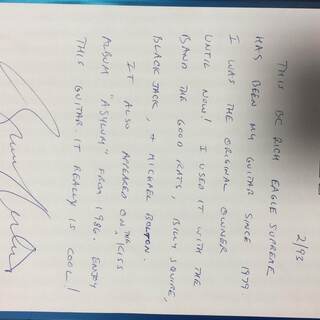 2/93
THIS BC RICH EAGLE SUPREME
HAS BEEN MY GUITAR SINCE 1979
I WAS THE ORIGINAL OWNER
UNTIL NOW! I USED IT WITH THE
BAND THE GOOD RATS, BILLY SQUIRE,
BLACK JACK, + MICHAEL BOLTON.
IT ALSO APPEARED ON THE KISS
ALBUM "ASYLUM" FROM 1986. ENJOY
THIS GUITAR IT REALLY IS COOL!